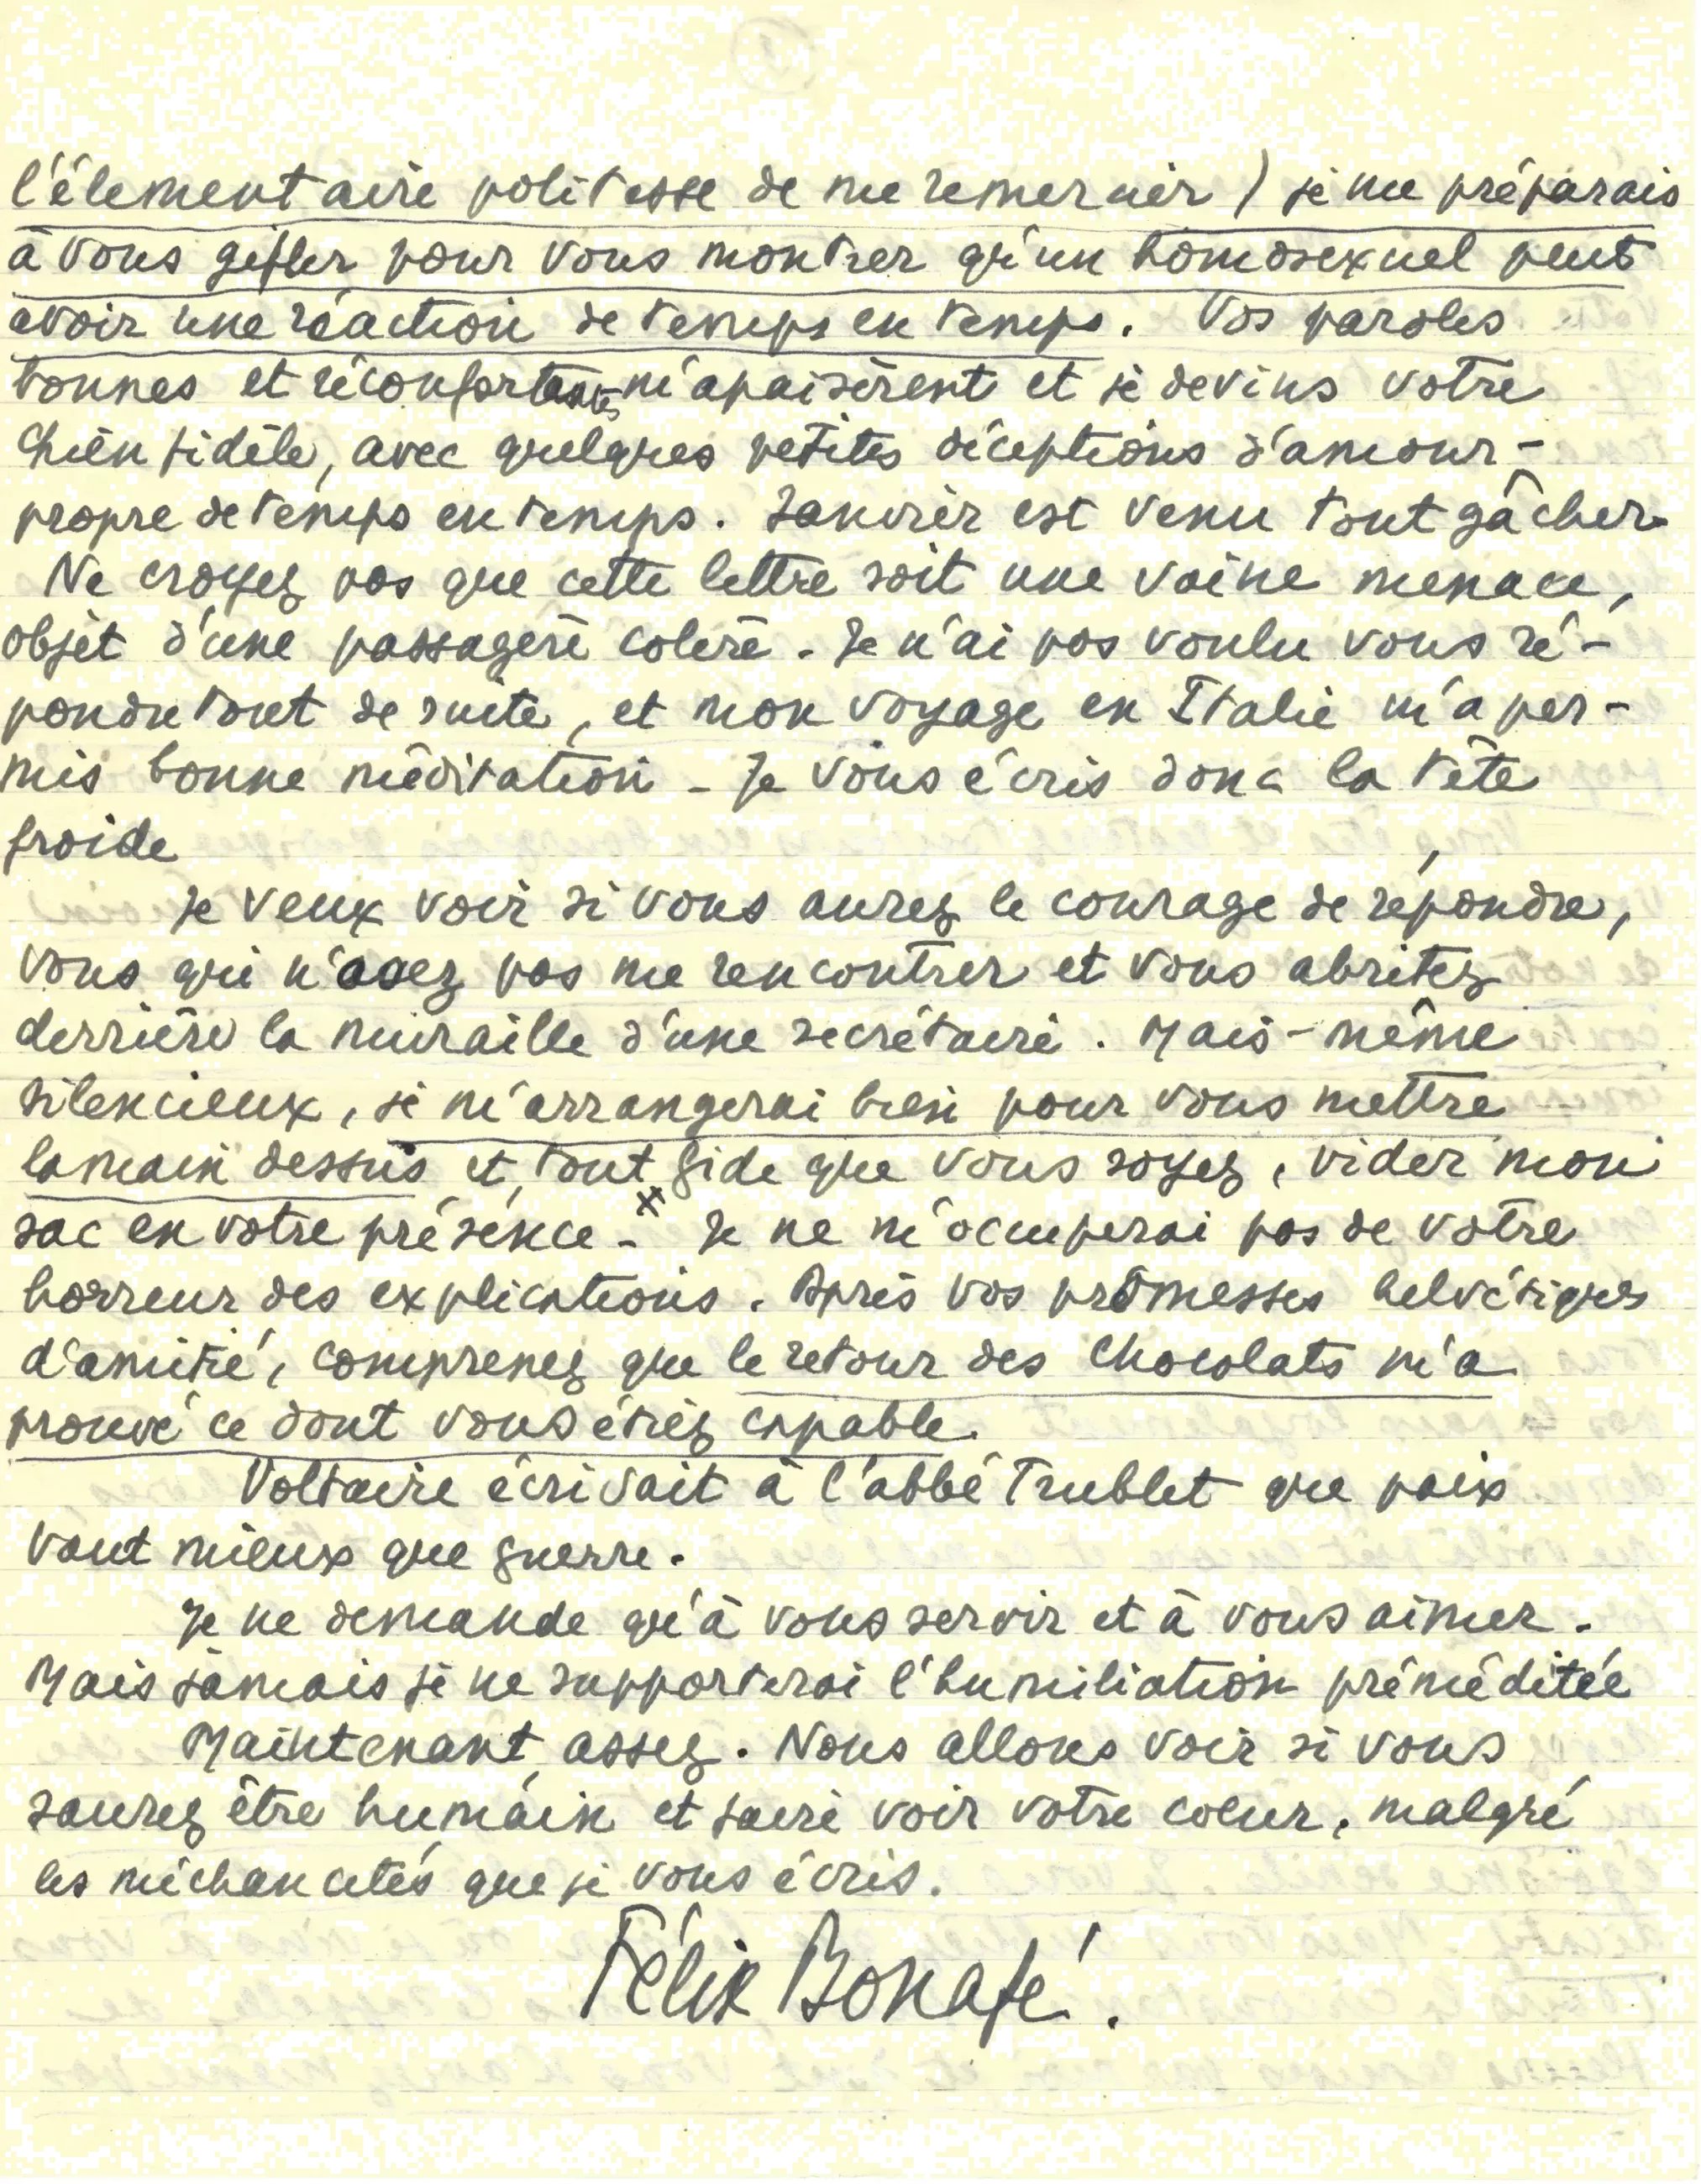 l'élementaire politesse de me remercier) je me préparais
à vous gifler pour vous montrer qu'un homosexuel peut
avoir une réaction de temps en temps. Vos paroles
bonnes et réconfortantes m'apaisèrent et je devins votre
chien fidèle, avec quelques petites déceptions d'amour-
propre de temps en temps. Janvier est venu tout gâcher.
Ne croyez pas que cette lettre soit une vaine menace,
objet d'une passagère colère. Je n'ai pas voulu vous ré-
pondre tout de suite, et mon voyage en Italie m'a per-
mis bonne méditation - Je vous écris donc la tête
froide
Je veux voir si vous aurez le courage de répondre,
vous qui n'osez pas me rencontrer et vous abritez
derrière la muraille d'une secrétaire. Mais - même
silencieux, je m'arrangerai bien pour vous mettre
la main dessus et, tout Gide que vous soyez, vider mon
sac en votre présence - x Je ne m'occuperai pas de votre
horreur des explications. Après vos promesses helvétiques
d'amitié, comprenez que le retour des chocolats m'a
prouvé ce dont vous étiez capable.
Voltaire écrivait à l'abbé Trublet que paix
vaut mieux que guerre.
Je ne demande qu'à vous servir et à vous aimer.
Mais jamais je ne supporterai l'humiliation préméditée
Maintenant, assez. Nous allons voir si vous
saurez être humain et faire voir votre coeur, malgré
les méchancetés que je vous écris.
Félix Bonafé.